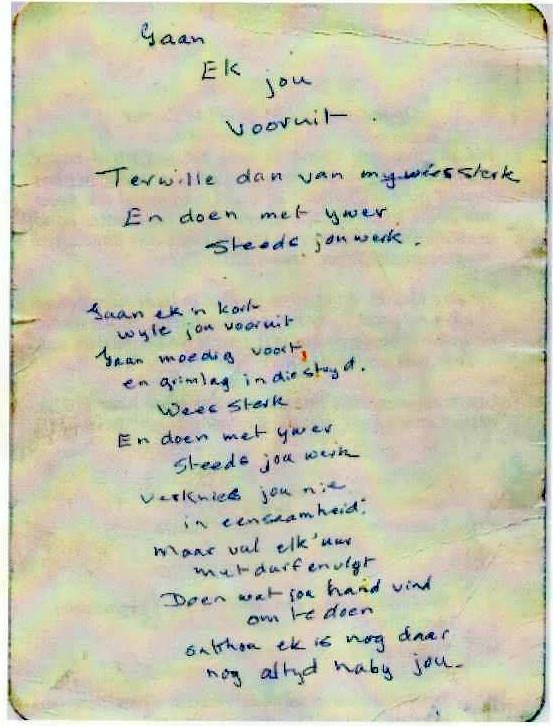 Gaan
Ek jou
vooruit.
Terwille dan van my wees sterk
En doen met ywer
Steeds jou werk.
Gaan ek 'n kort
wyle jou vooruit
Gaan moedig voort,
en grimlag in die stryd.
Wees Sterk
En doen met ywer
Steeds jou werk
Verknies jou nie
in eensaamheid:
maar vul elk' uur
met durf en vlyt
Doen wat jou hand vind
om te doen
onthou ek is nog daar
nog altyd naby jou.